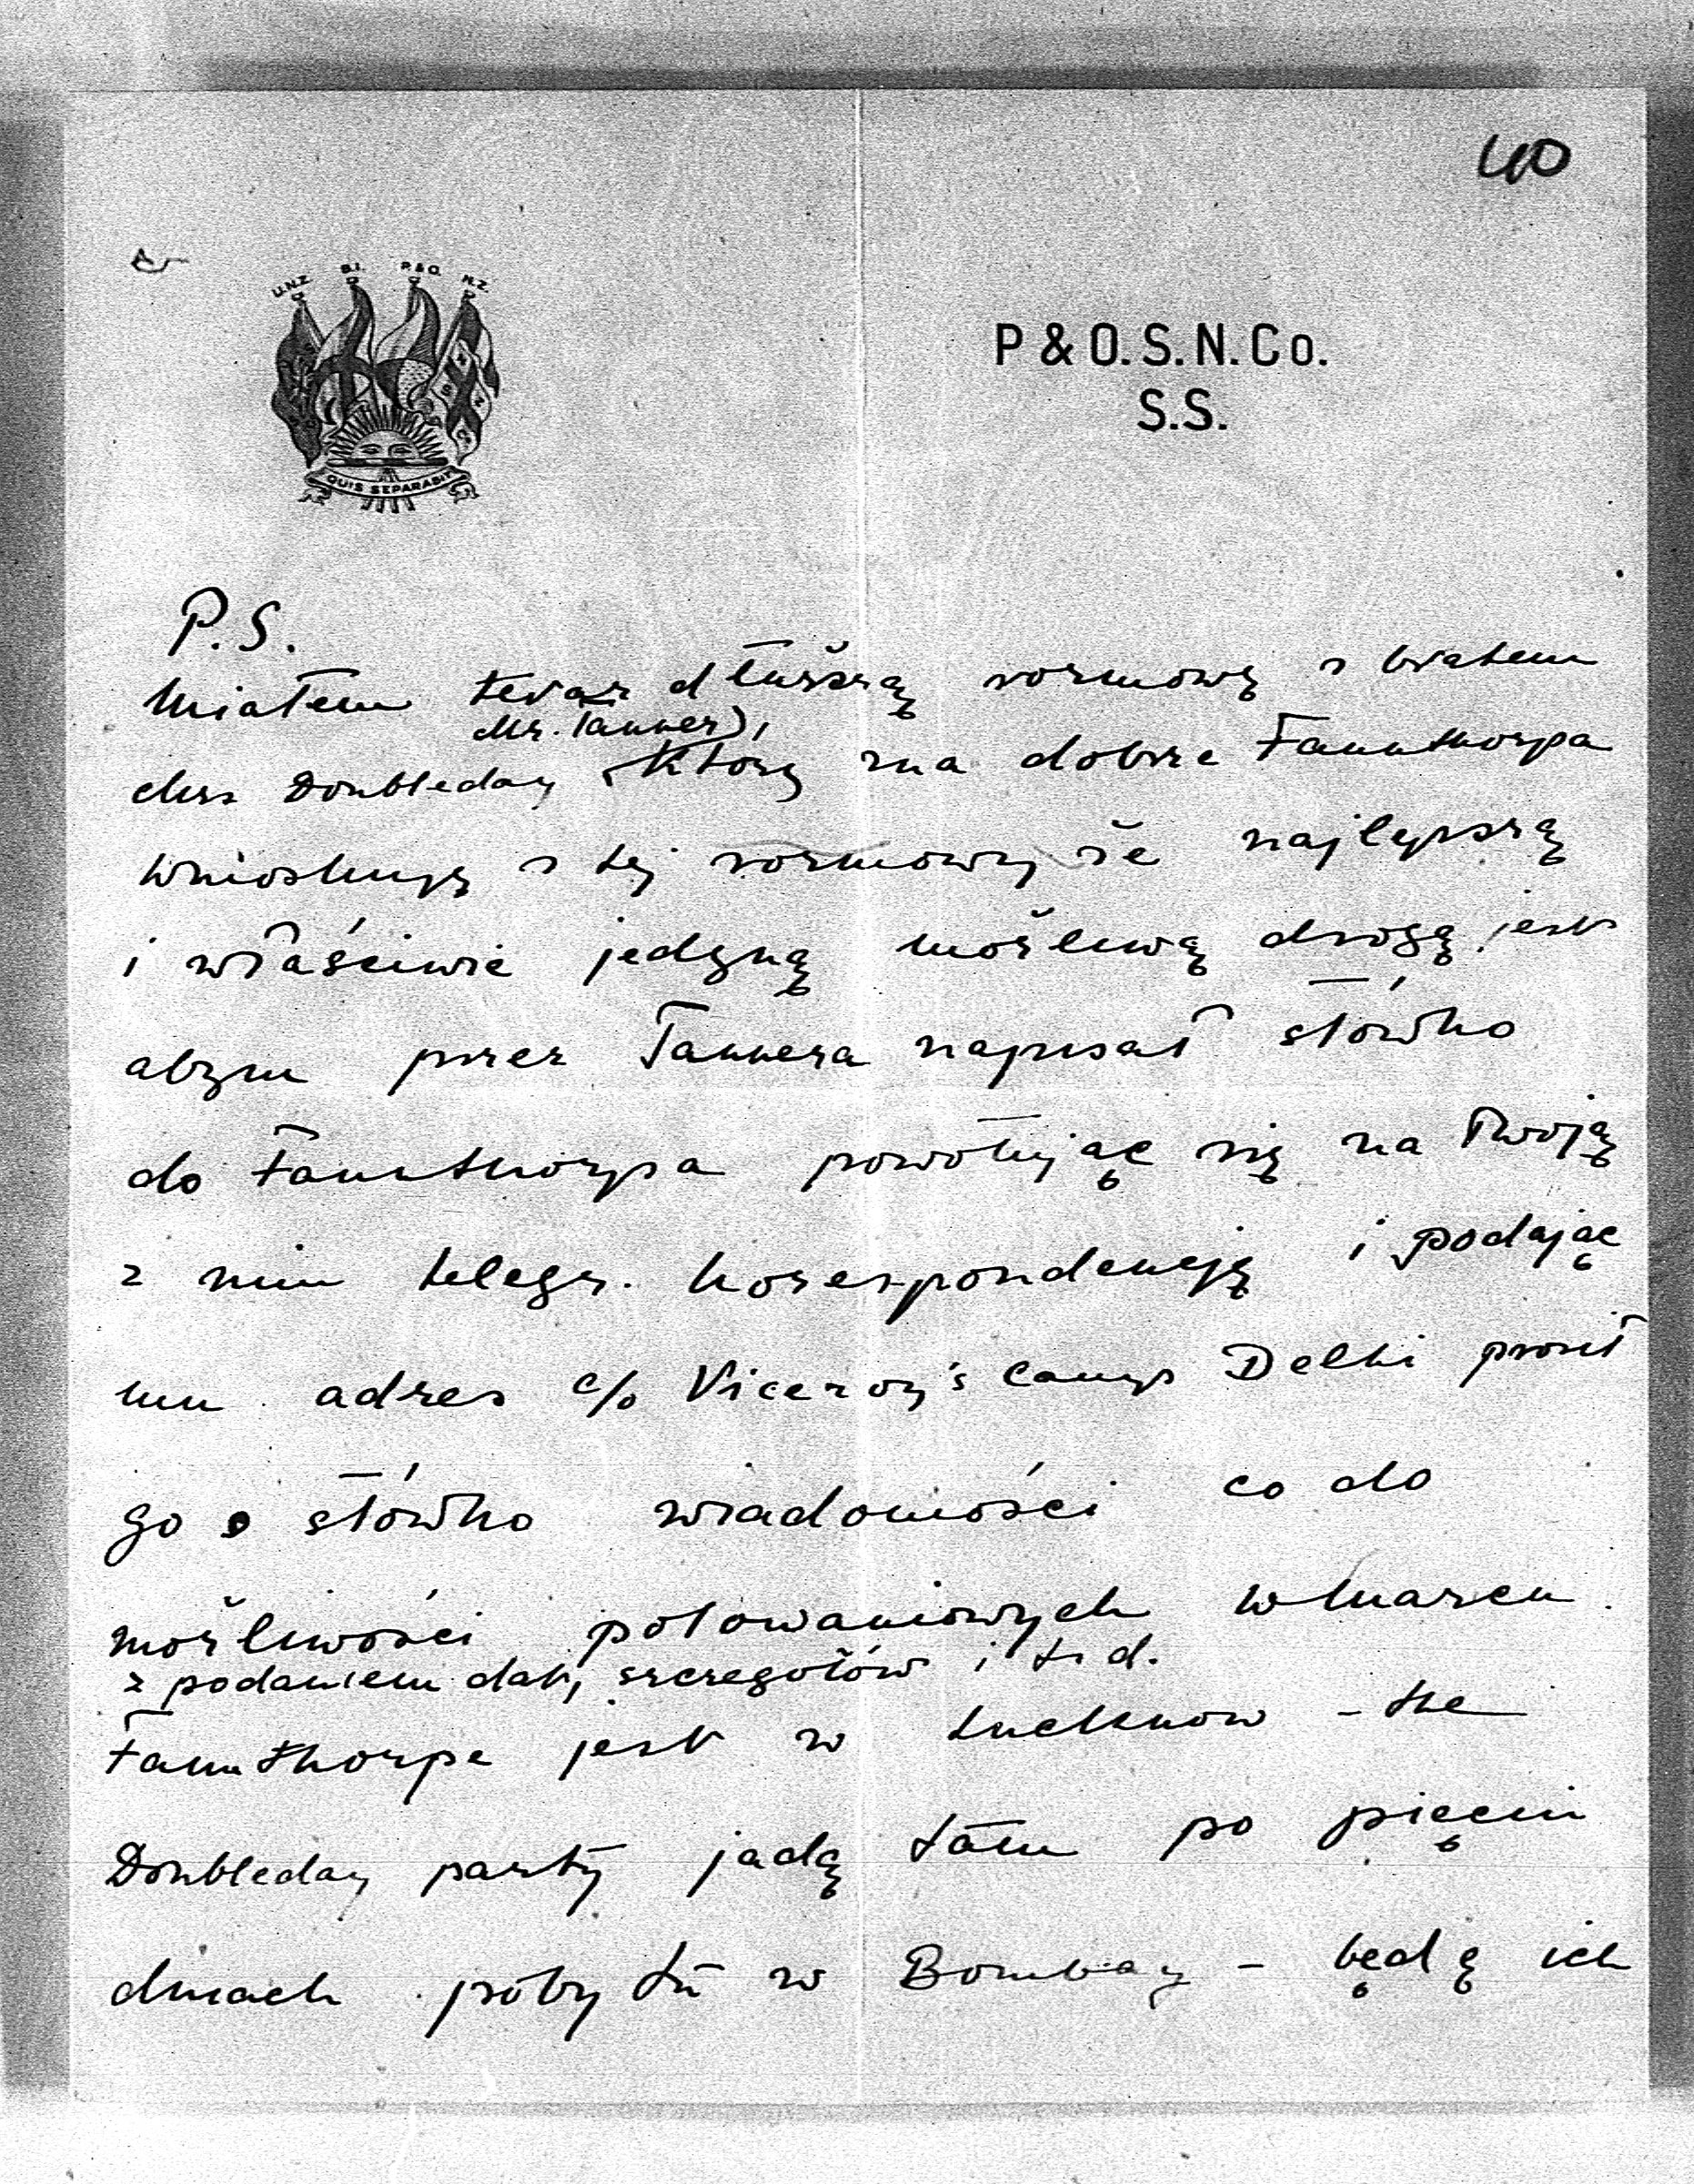 40
U.N.Z. B.I. P.&O. N.Z.
QUIS SEPARABIT
P & O. S. N. Co.
S.S.
P.S.
Miałem teraz dłuższą rozmowę z bratem
Mr. Tanner),
Mrs Doubleday (który zna dobrze Faunthorpa
Wnioskuję z tej rozmowy że najlepszą
i właściwie jedyną możliwą drogą jest
abym przez Tannera napisał słówko
do Faunthorpa powołując się na Twoją
z nim telegr. korespondencję i podając
mu adres c/o Viceroy's Camp Delhi prosił
go o słówko wiadomości co do
możliwości polowaniowych w marcu.
z podaniem dat, szczegółów i t. d.
Faunthorpe jest w Lucknow – the
Doubleday party jadą tam po pięciu
dniach pobytu w Bombay – będę ich